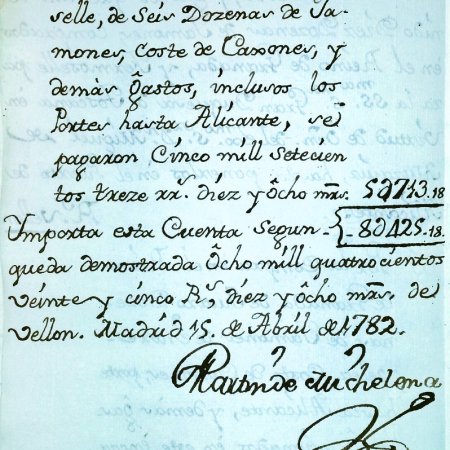 selle, de Seis Dozenas de Ja-
mones, Coste de Caxones, y
demàs gastos, inclusos los
Portes hasta Alicante, se
pagaron Cinco mill Setecien
tos treze rr.s diez y Ôcho mrs. 5U713..18
Importa esta Cuenta Segun 8U425..18
queda demostrada Ôcho mill quatrocientos
veinte y cinco Rs, diez y ôcho mrs. de
vellon. Madrid 15. de Abril de 1782.
Martin de Michelena